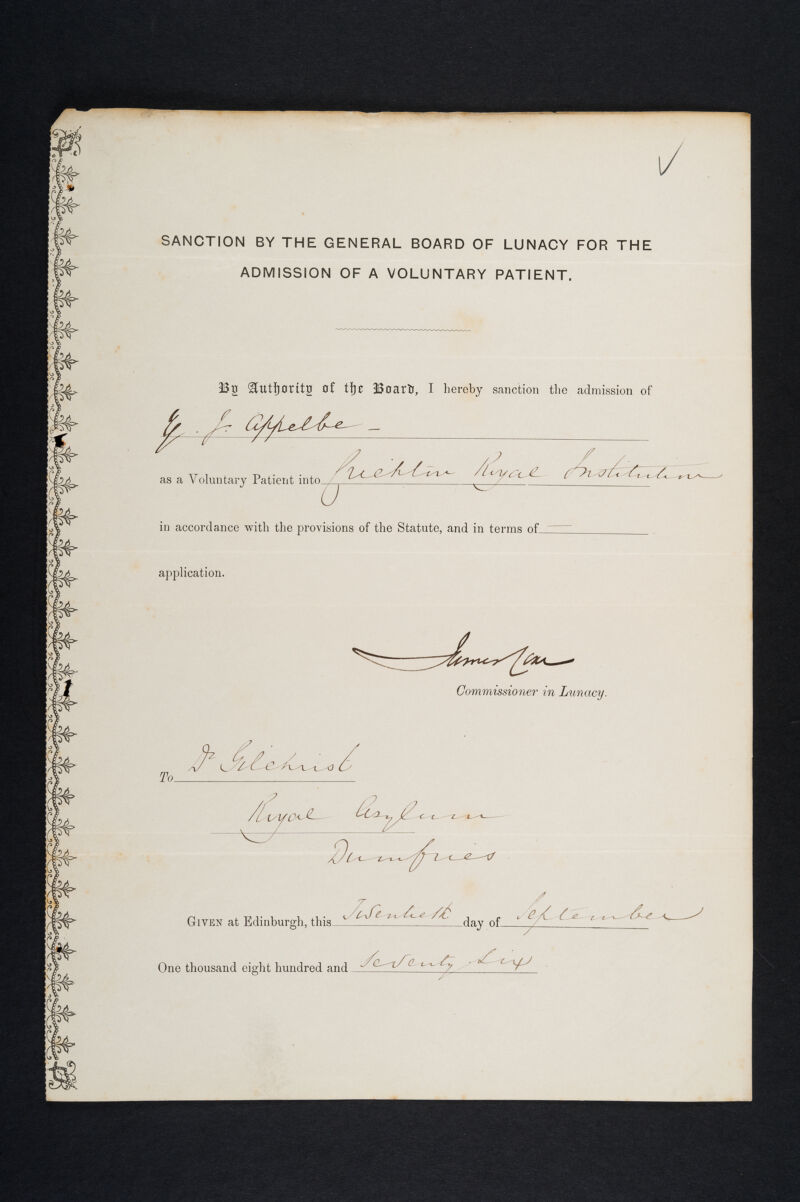 SANCTION BY THE GENERAL BOARD OF LUNACY FOR THE
ADMISSION OF A VOLUNTARY PATIENT.
By Authority of the Board, I hereby sanction the admission of
J. Appelbe –
as a Voluntary Patient into Crichton Royal Institution
in accordance with the provisions of the Statute, and in terms of
application.
James Coxe
Commissioner in Lunacy.
To Dr Gilchrist
Royal Asylum
Dumfries
GIVEN at Edinburgh, this Twentieth day of September
One thousand eight hundred and Seventy Six